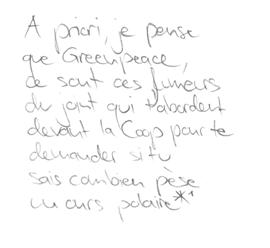 A priori, je pense
que Greenpeace,
ce sont ces fumeurs
du joint qui t'abordent
devant la Coop pour te
demander si tu
sais combien pèse
un ours polaire*¹